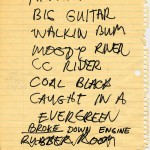 BIG GUITAR
WALKIN BUM
MOODY RIVER
CC RIVER
COAL BLACK
CAUGHT IN A
EVERGREEN
BROKE DOWN ENGINE
RUBBER ROOM